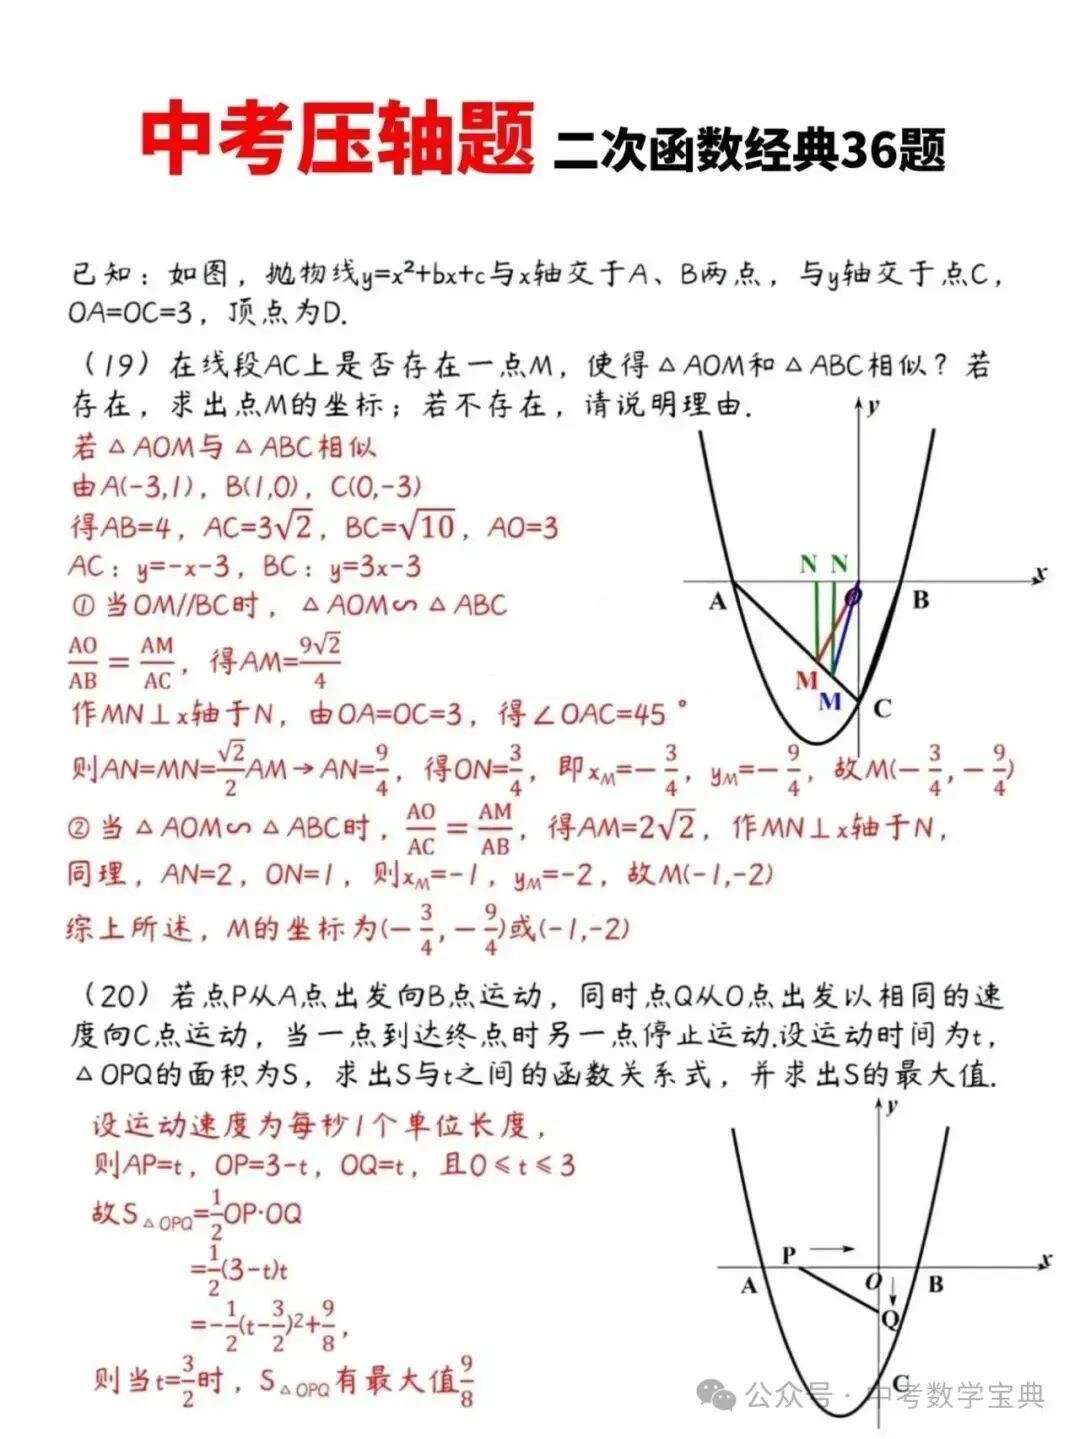 中考压轴题 二次函数经典36题
已知：如图，抛物线y=x²+bx+c与x轴交于A、B两点，与y轴交于点C，
OA=OC=3，顶点为D.
（19）在线段AC上是否存在一点M，使得△AOM和△ABC相似？若
存在，求出点M的坐标；若不存在，请说明理由.
若△AOM与△ABC相似
由A(-3,1)，B(1,0)，C(0,-3)
得AB=4，AC=3√2，BC=√10，AO=3
AC：y=-x-3，BC：y=3x-3
①当OM//BC时，△AOM∽△ABC
AO/AB=AM/AC，得AM=9√2/4
作MN⊥x轴于N，由OA=OC=3，得∠OAC=45°
则AN=MN=√2/2AM→AN=9/4，得ON=3/4，即xM=-3/4，yM=-9/4，故M(-3/4,-9/4)
②当△AOM∽△ABC时，AO/AC=AM/AB，得AM=2√2，作MN⊥x轴于N，
同理，AN=2，ON=1，则xM=-1，yM=-2，故M(-1,-2)
综上所述，M的坐标为(-3/4,-9/4)或(-1,-2)
y
x
N N
A
B
M
M
C
（20）若点P从A点出发向B点运动，同时点Q从O点出发以相同的速
度向C点运动，当一点到达终点时另一点停止运动.设运动时间为t，
△OPQ的面积为S，求出S与t之间的函数关系式，并求出S的最大值.
设运动速度为每秒1个单位长度，
则AP=t，OP=3-t，OQ=t，且0≤t≤3
故S△OPQ=1/2OP·OQ
=1/2(3-t)t
=-1/2(t-3/2)²+9/8，
则当t=3/2时，S△OPQ有最大值9/8
y
P
x
A
O
B
Q
C
公众号·中考数学宝典